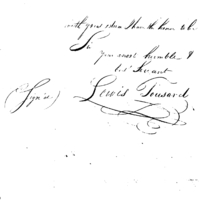 with your esteem I have the honor to be
Sir
your most humble &
obt Servant
(Sign'd) Lewis Tousard